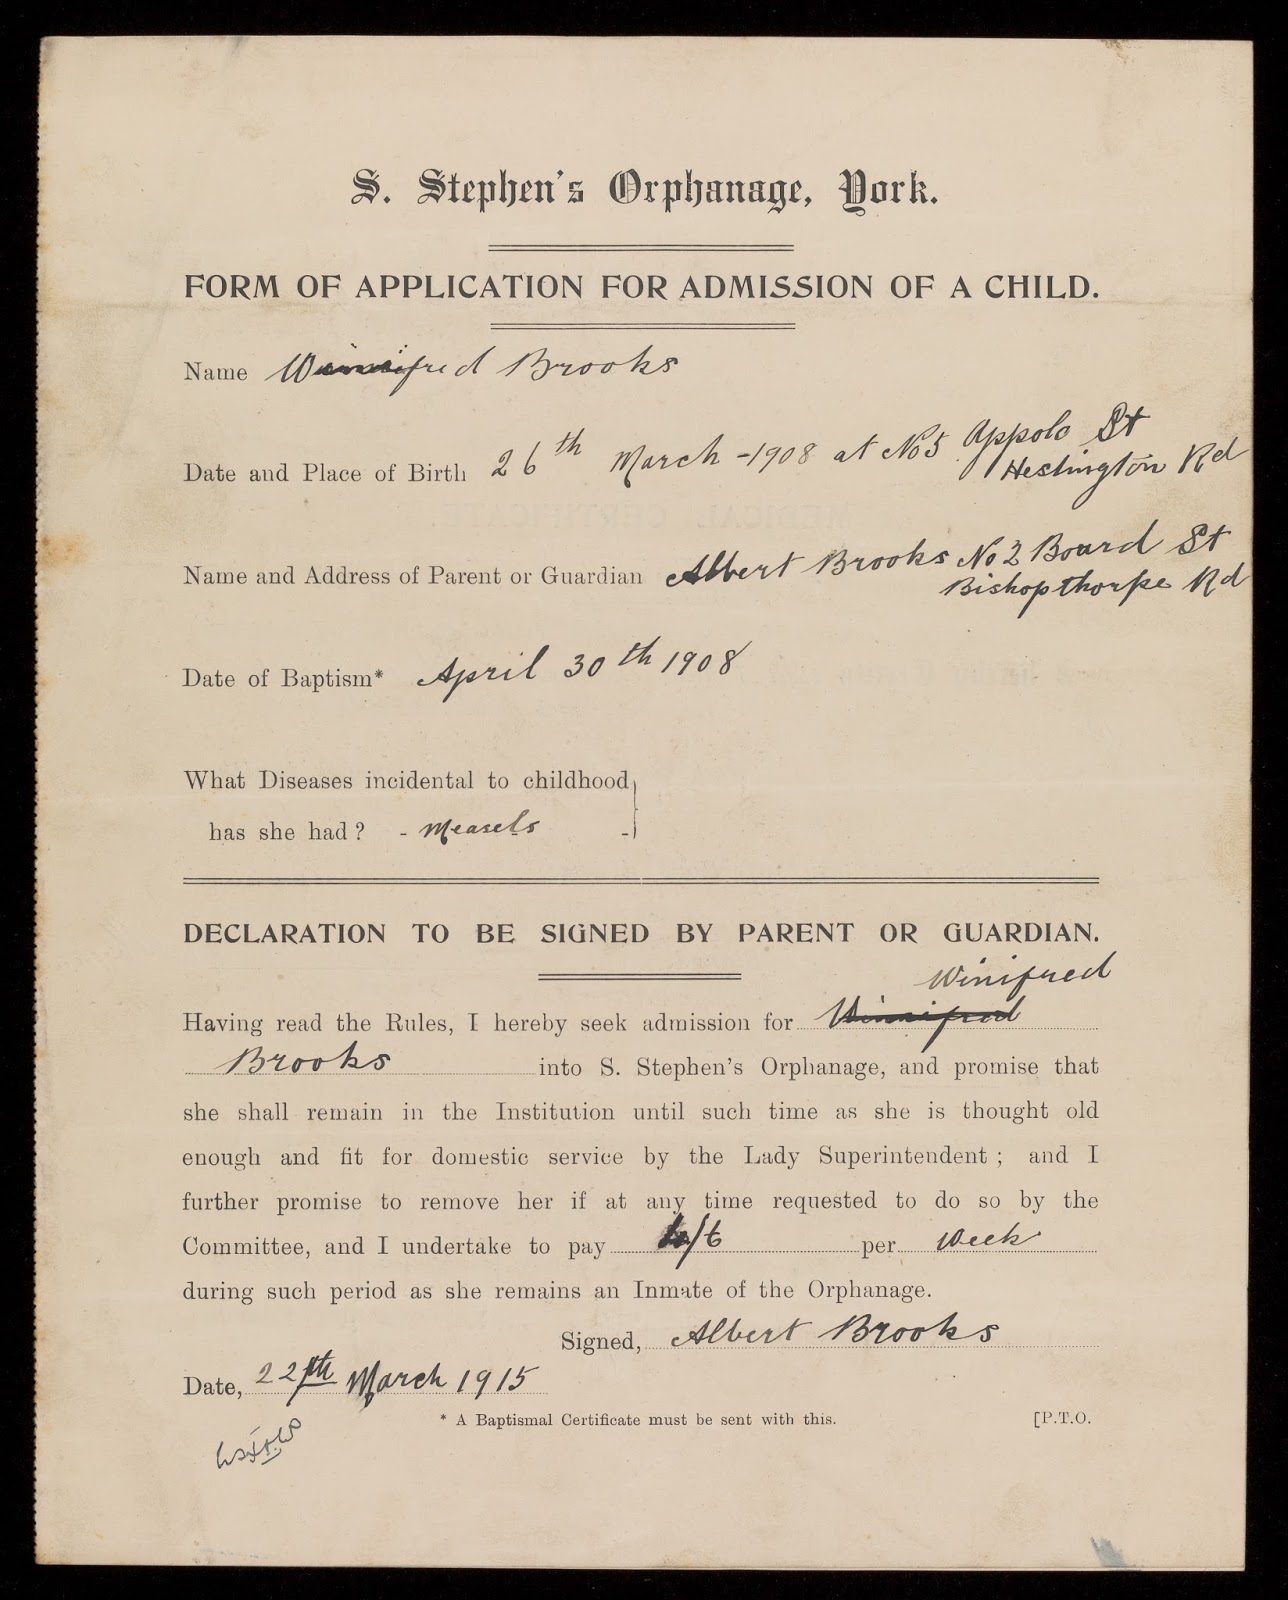 S. Stephen's Orphanage, York.
FORM OF APPLICATION FOR ADMISSION OF A CHILD.
Name Winnifred Brooks
Date and Place of Birth 26th March - 1908 at No 5 Appolo St
Heslington Rd
Name and Address of Parent or Guardian Albert Brooks No 2 Board St
Bishopthorpe Rd
Date of Baptism* April 30th 1908
What Diseases incidental to childhood
has she had? - Measels -
DECLARATION TO BE SIGNED BY PARENT OR GUARDIAN.
Winifred
Having read the Rules, I hereby seek admission for Winnifred
Brooks into S. Stephen's Orphanage, and promise that
she shall remain in the Institution until such time as she is thought old
enough and fit for domestic service by the Lady Superintendent; and I
further promise to remove her if at any time requested to do so by the
Committee, and I undertake to pay /6 per week
during such period as she remains an Inmate of the Orphanage.
Signed, Albert Brooks
Date, 22th March 1915
* A Baptismal Certificate must be sent with this. [P.T.O.